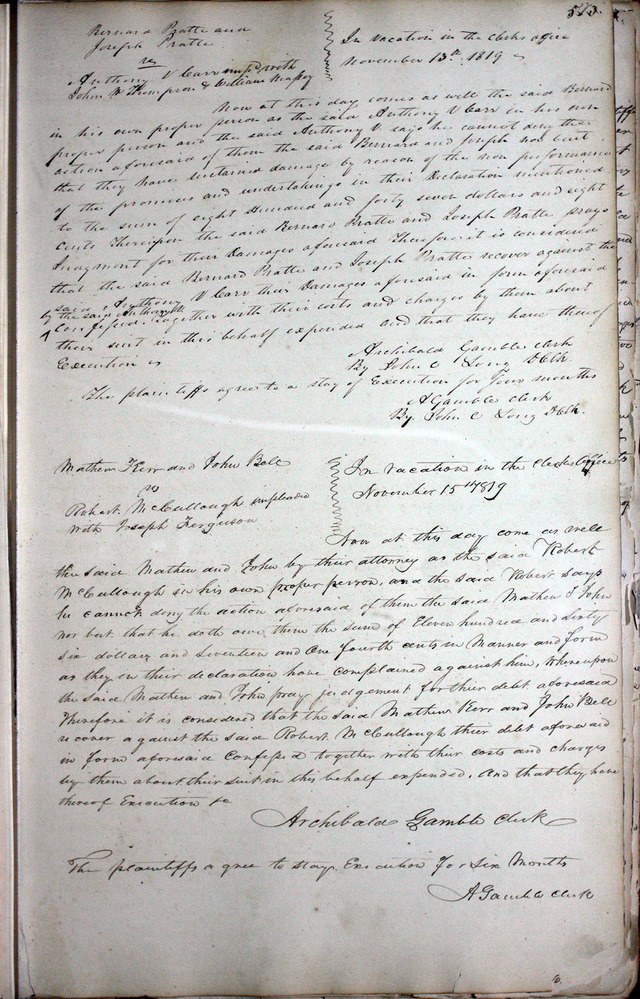 513.
Bernard Pratte and
Joseph Pratte
vs
Anthony V Carr imp'd with
John W Thompson & William Massey
In vacation in the clerks office
November 13th 1819
Now at this day comes as well the said Bernard
in his own proper person as the said Anthony V Carr in his own
proper person and the said Anthony V says he cannot deny the
action aforesaid of them the said Bernard and Joseph nor but
that they have sustained damage by reason of the non performance
of the promises and undertakings in their Declaration mentioned
to the sum of eight Hundred and forty seven dollars and eight
cents Thereupon the said Bernard Pratte and Joseph Pratte prays
Judgment for their Damages aforesaid Therefore it is considered
that the said Bernard Pratte and Joseph Pratte recover against the
said Anthony V Carr their Damages aforesaid in form aforesaid
by the said Anthony
Confessed together with their costs and charges by them about
their suit in this behalf expended and that they have thereof
Execution
Archibald Gamble clerk
By John C Long D Clk
The plaintiffs agree to a stay of Execution for Four months
A Gamble clerk
By John C Long D Clk.
Mathew Kerr and John Bell
vs
Robert McCullough impleaded
with Joseph Ferguson
In vacation in the Clerks Office
November 15th 1819
Now at this day come as well
the said Mathew and John by their attorney as the said Robert
McCullough in his own proper person, and the said Robert says
he cannot deny the action aforesaid of them the said Mathew & John
nor but that he doth owe them the sum of Eleven hundred and Sixty
six dollars and seventeen and One fourth cents in Manner and form
as they in their declaration have complained against him, whereupon
the said Mathew and John pray judgement for their debt aforesaid
Therefore it is considered that the said Mathew Kerr and John Bell
recover against the said Robert McCullough their debt aforesaid
in form aforesaid Confessed together with their costs and charges
by them about their suit in this behalf expended, and that they have
thereof Execution &c
Archibald Gamble Clerk
The plaintiffs agree to stay Execution for Six Months
A Gamble clerk